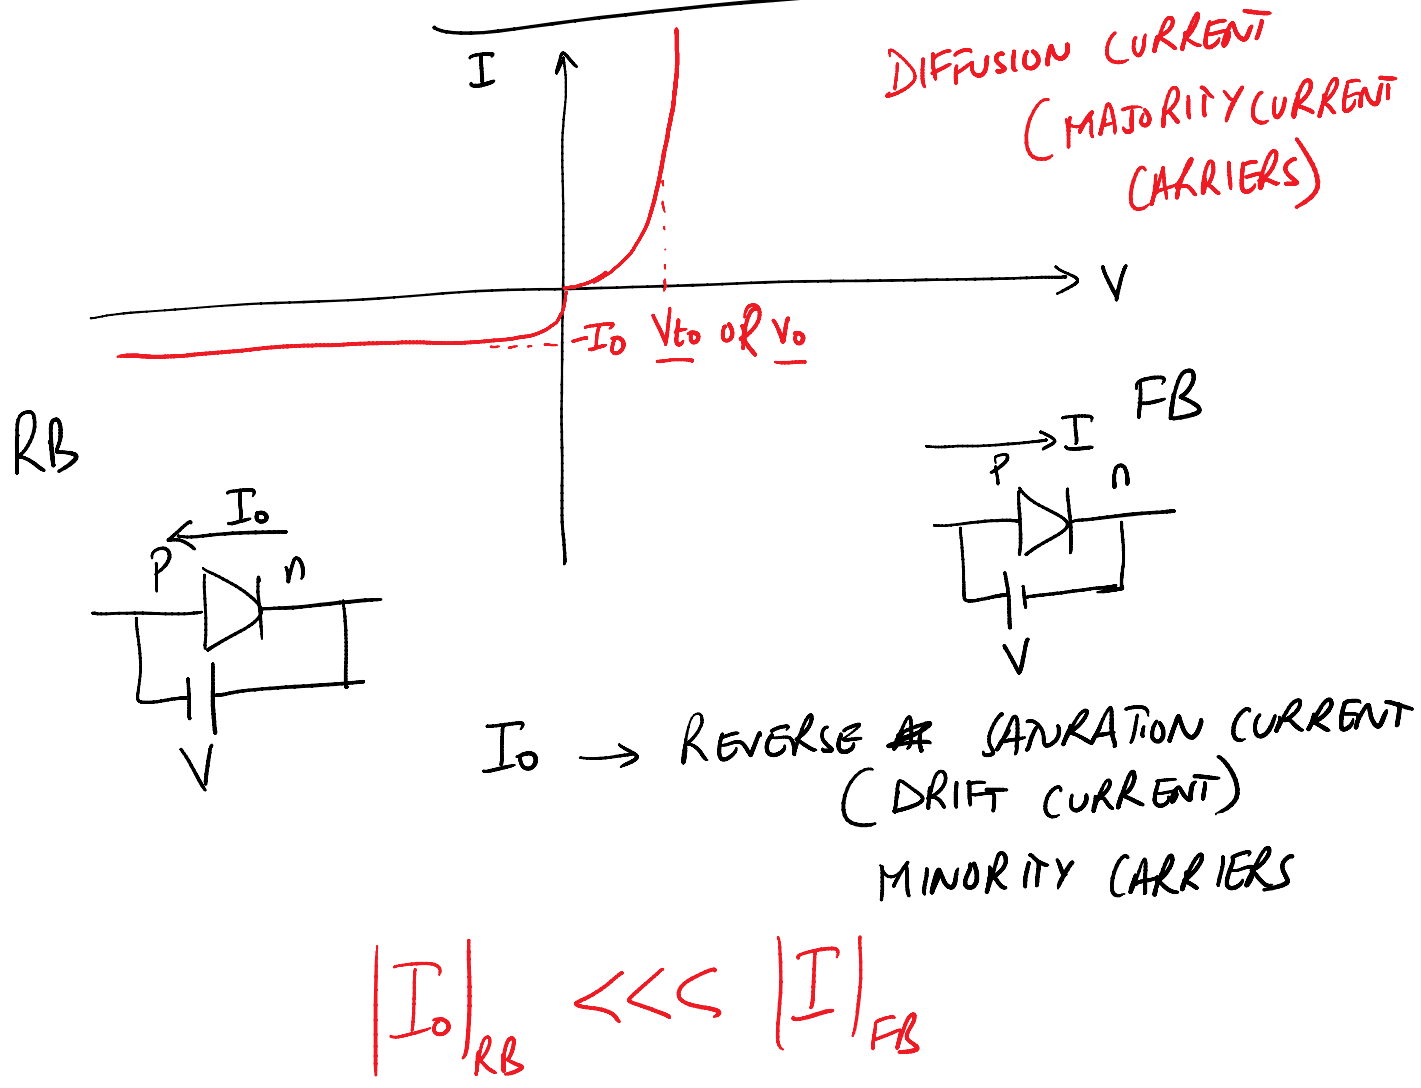 I
DIFFUSION CURRENT
(MAJORITY CURRENT
CARRIERS)
V
-I₀ Vto OR V₀
FB
I
P n
V
RB
I₀
P n
V
I₀ → REVERSE SATURATION CURRENT
(DRIFT CURRENT)
MINORITY CARRIERS
|I₀|RB <<< |I|FB